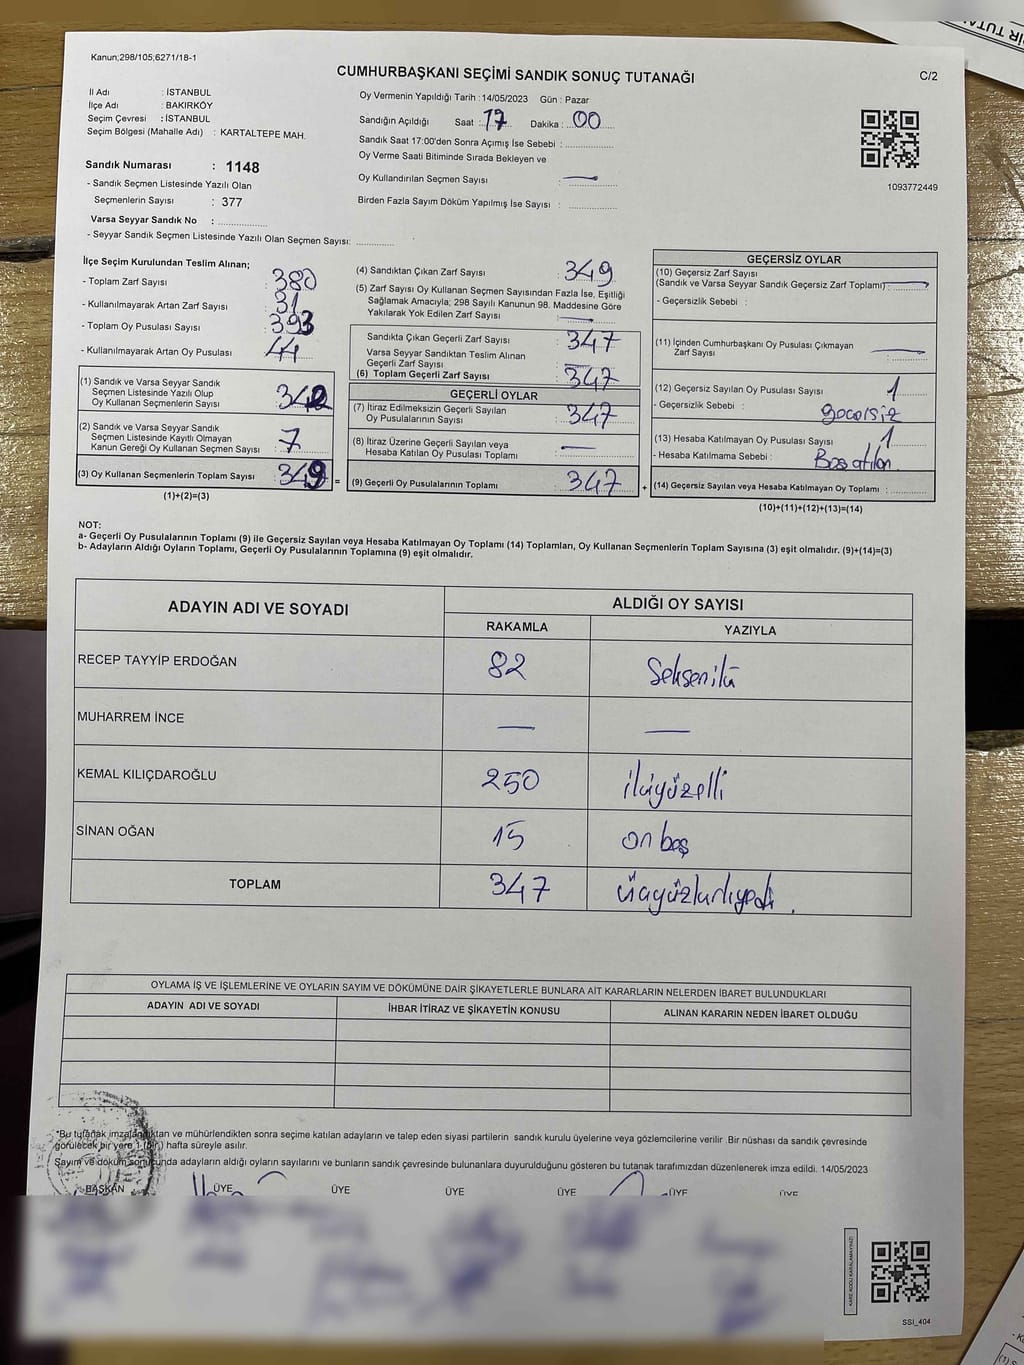 Kanun;298/105;6271/18-1
CUMHURBAŞKANI SEÇİMİ SANDIK SONUÇ TUTANAĞI
C/2
İl Adı : İSTANBUL
İlçe Adı : BAKIRKÖY
Seçim Çevresi : İSTANBUL
Seçim Bölgesi (Mahalle Adı) : KARTALTEPE MAH.
Sandık Numarası : 1148
- Sandık Seçmen Listesinde Yazılı Olan
Seçmenlerin Sayısı : 377
Varsa Seyyar Sandık No :
- Seyyar Sandık Seçmen Listesinde Yazılı Olan Seçmen Sayısı:
Oy Vermenin Yapıldığı Tarih : 14/05/2023 Gün : Pazar
Sandığın Açıldığı Saat : 17 Dakika : 00
Sandık Saat 17:00'den Sonra Açımış İse Sebebi :
Oy Verme Saati Bitiminde Sırada Bekleyen ve
Oy Kullandırılan Seçmen Sayısı : —
Birden Fazla Sayım Döküm Yapılmış İse Sayısı :
1093772449
İlçe Seçim Kurulundan Teslim Alınan;
- Toplam Zarf Sayısı : 380
- Kullanılmayarak Artan Zarf Sayısı : 31
- Toplam Oy Pusulası Sayısı : 393
- Kullanılmayarak Artan Oy Pusulası : 44
(1) Sandık ve Varsa Seyyar Sandık
Seçmen Listesinde Yazılı Olup
Oy Kullanan Seçmenlerin Sayısı : 342
(2) Sandık ve Varsa Seyyar Sandık
Seçmen Listesinde Kayıtlı Olmayan
Kanun Gereği Oy Kullanan Seçmen Sayısı : 7
(3) Oy Kullanan Seçmenlerin Toplam Sayısı : 349 =
(1)+(2)=(3)
(4) Sandıktan Çıkan Zarf Sayısı : 349
(5) Zarf Sayısı Oy Kullanan Seçmen Sayısından Fazla İse, Eşitliği
Sağlamak Amacıyla; 298 Sayılı Kanunun 98. Maddesine Göre
Yakılarak Yok Edilen Zarf Sayısı : —
Sandıkta Çıkan Geçerli Zarf Sayısı : 347
Varsa Seyyar Sandıktan Teslim Alınan
Geçerli Zarf Sayısı :
(6) Toplam Geçerli Zarf Sayısı : 347
GEÇERLİ OYLAR
(7) İtiraz Edilmeksizin Geçerli Sayılan
Oy Pusulalarının Sayısı : 347
(8) İtiraz Üzerine Geçerli Sayılan veya
Hesaba Katılan Oy Pusulası Toplamı : —
(9) Geçerli Oy Pusulalarının Toplamı : 347 +
GEÇERSİZ OYLAR
(10) Geçersiz Zarf Sayısı
(Sandık ve Varsa Seyyar Sandık Geçersiz Zarf Toplamı) : —
- Geçersizlik Sebebi :
(11) İçinden Cumhurbaşkanı Oy Pusulası Çıkmayan
Zarf Sayısı : —
(12) Geçersiz Sayılan Oy Pusulası Sayısı : 1
- Geçersizlik Sebebi : geçersiz
(13) Hesaba Katılmayan Oy Pusulası Sayısı : 1
- Hesaba Katılmama Sebebi : Boş atılan.
(14) Geçersiz Sayılan veya Hesaba Katılmayan Oy Toplamı :
(10)+(11)+(12)+(13)=(14)
NOT:
a- Geçerli Oy Pusulalarının Toplamı (9) ile Geçersiz Sayılan veya Hesaba Katılmayan Oy Toplamı (14) Toplamları, Oy Kullanan Seçmenlerin Toplam Sayısına (3) eşit olmalıdır. (9)+(14)=(3)
b- Adayların Aldığı Oyların Toplamı, Geçerli Oy Pusulalarının Toplamına (9) eşit olmalıdır.
ADAYIN ADI VE SOYADI
ALDIĞI OY SAYISI
RAKAMLA YAZIYLA
RECEP TAYYİP ERDOĞAN 82 Seksen iki
MUHARREM İNCE — —
KEMAL KILIÇDAROĞLU 250 ikiyüzelli
SİNAN OĞAN 15 on beş
TOPLAM 347 üçyüzkırkyedi.
OYLAMA İŞ VE İŞLEMLERİNE VE OYLARIN SAYIM VE DÖKÜMÜNE DAİR ŞİKAYETLERLE BUNLARA AİT KARARLARIN NELERDEN İBARET BULUNDUKLARI
ADAYIN ADI VE SOYADI İHBAR İTİRAZ VE ŞİKAYETİN KONUSU ALINAN KARARIN NEDEN İBARET OLDUĞU
*Bu tutanak imzalandıktan ve mühürlendikten sonra seçime katılan adayların ve talep eden siyasi partilerin sandık kurulu üyelerine veya gözlemcilerine verilir. Bir nüshası da sandık çevresinde
görülecek bir yere 1 (bir) hafta süreyle asılır.
Sayım ve döküm sonucunda adayların aldığı oyların sayılarını ve bunların sandık çevresinde bulunanlara duyurulduğunu gösteren bu tutanak tarafımızdan düzenlenerek imza edildi. 14/05/2023
BAŞKAN ÜYE ÜYE ÜYE ÜYE ÜYE ÜYE
SSI_404